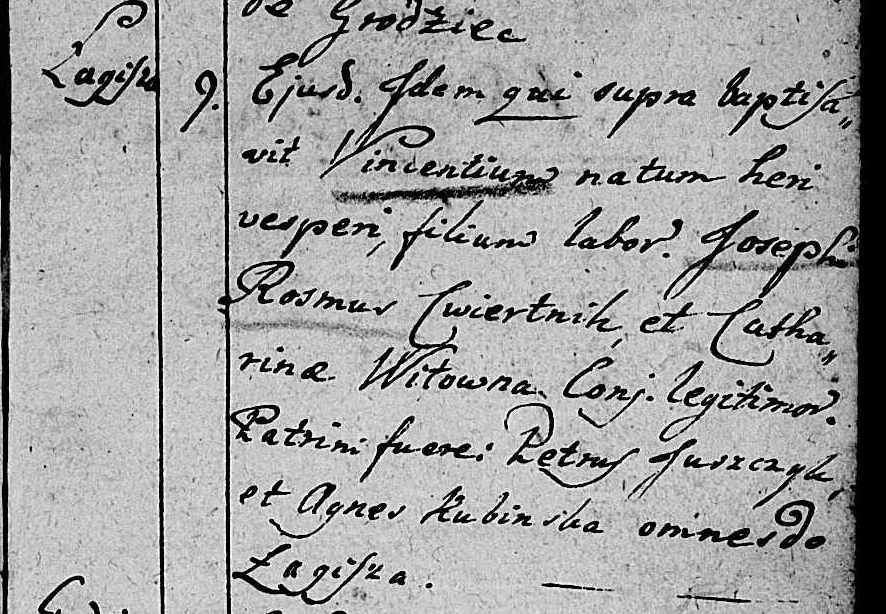 de Grodziec
Łagisza 9. Ejusd. Idem qui supra baptisa„
vit Vincentium natum heri
vesperi, filium labor. Josephi
Rosmus Cwiertnik, et Catha„
rinæ Witowna. Conj. legitimor.
Patrini fuere: Petrus Juszczyk,
et Agnes Kubinska omnes de
Łagisza.